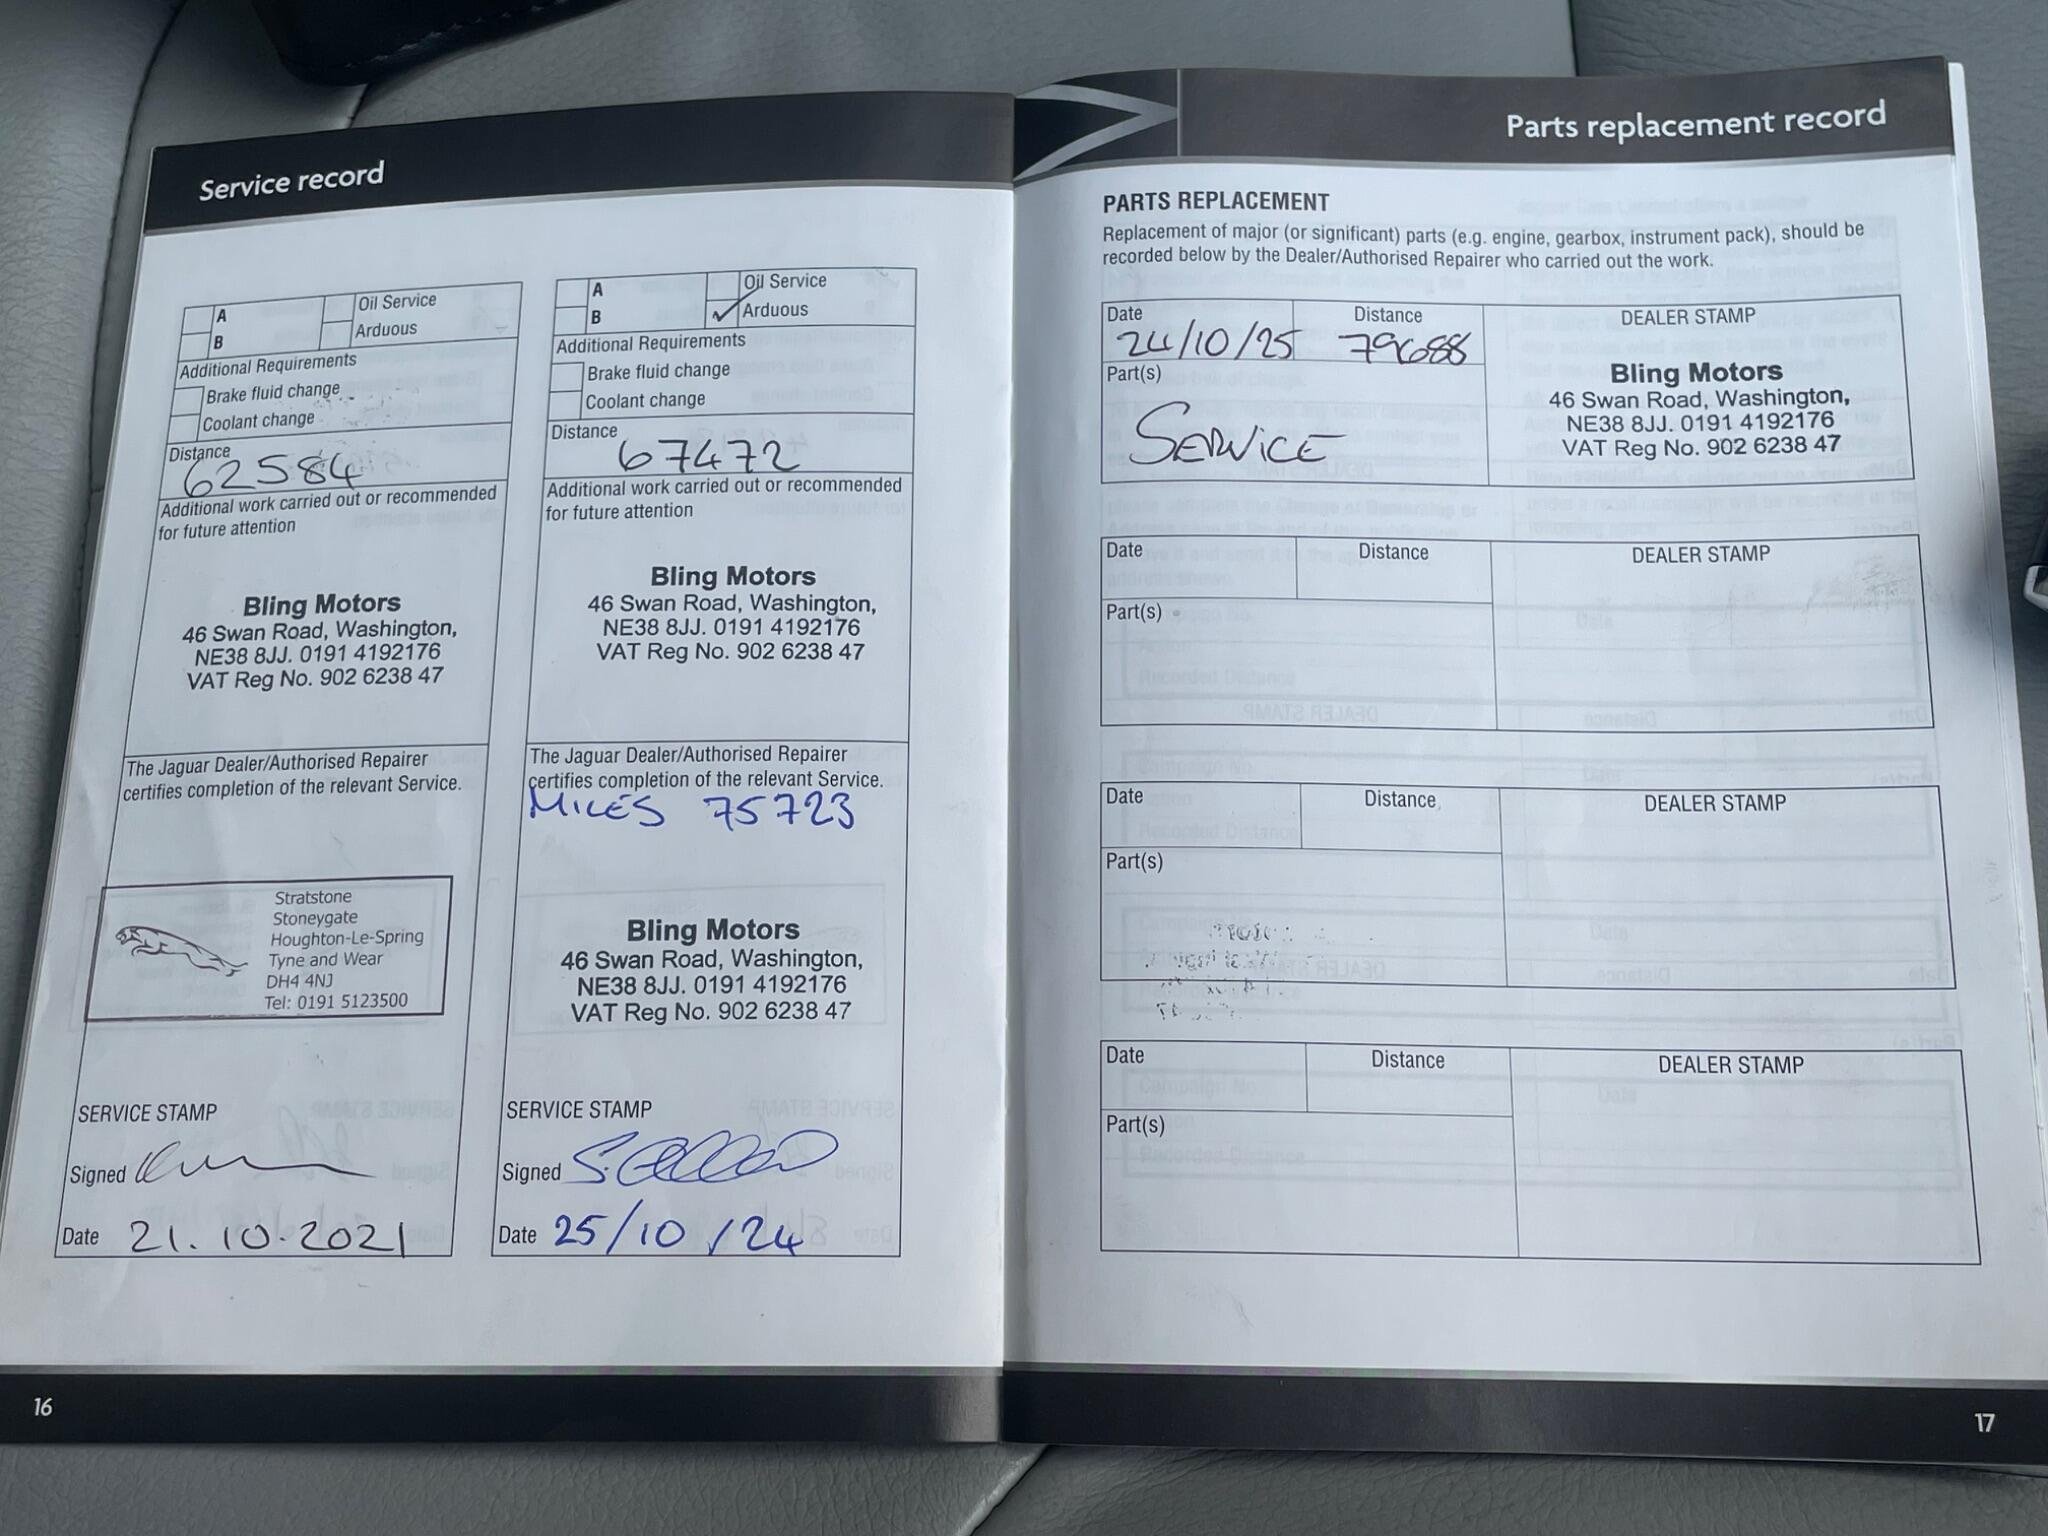 Service record
A
Oil Service
B
Arduous
Additional Requirements
Brake fluid change
Coolant change
Distance
62584
Additional work carried out or recommended
for future attention
Bling Motors
46 Swan Road, Washington,
NE38 8JJ. 0191 4192176
VAT Reg No. 902 6238 47
The Jaguar Dealer/Authorised Repairer
certifies completion of the relevant Service.
Stratstone
Stoneygate
Houghton-Le-Spring
Tyne and Wear
DH4 4NJ
Tel: 0191 5123500
SERVICE STAMP
Signed
Date 21.10.2021
A
Oil Service
B
Arduous
Additional Requirements
Brake fluid change
Coolant change
Distance
67472
Additional work carried out or recommended
for future attention
Bling Motors
46 Swan Road, Washington,
NE38 8JJ. 0191 4192176
VAT Reg No. 902 6238 47
The Jaguar Dealer/Authorised Repairer
certifies completion of the relevant Service.
MILES 75723
Bling Motors
46 Swan Road, Washington,
NE38 8JJ. 0191 4192176
VAT Reg No. 902 6238 47
SERVICE STAMP
Signed
Date 25/10/24
16
Parts replacement record
PARTS REPLACEMENT
Replacement of major (or significant) parts (e.g. engine, gearbox, instrument pack), should be
recorded below by the Dealer/Authorised Repairer who carried out the work.
Date Distance DEALER STAMP
24/10/25 79688
Part(s)
SERVICE
Bling Motors
46 Swan Road, Washington,
NE38 8JJ. 0191 4192176
VAT Reg No. 902 6238 47
Date Distance DEALER STAMP
Part(s)
Date Distance DEALER STAMP
Part(s)
Date Distance DEALER STAMP
Part(s)
17